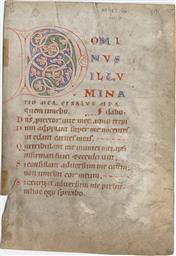 DOMI
NUS
ILLU
MINA
TIO MEA ET SALUS MEA
quem timebo.
D ns protector uite mee a quo trepi
D um appropiant super me nocentes
ut edant carnes meas.
Q ui tribulant me inimici mei ipsi
infirmati sunt et ceciderunt.
S i consistant aduersum me castra
non timebit cor meum.
S i exurgat aduersum me preliu
in hoc ego sperabo.